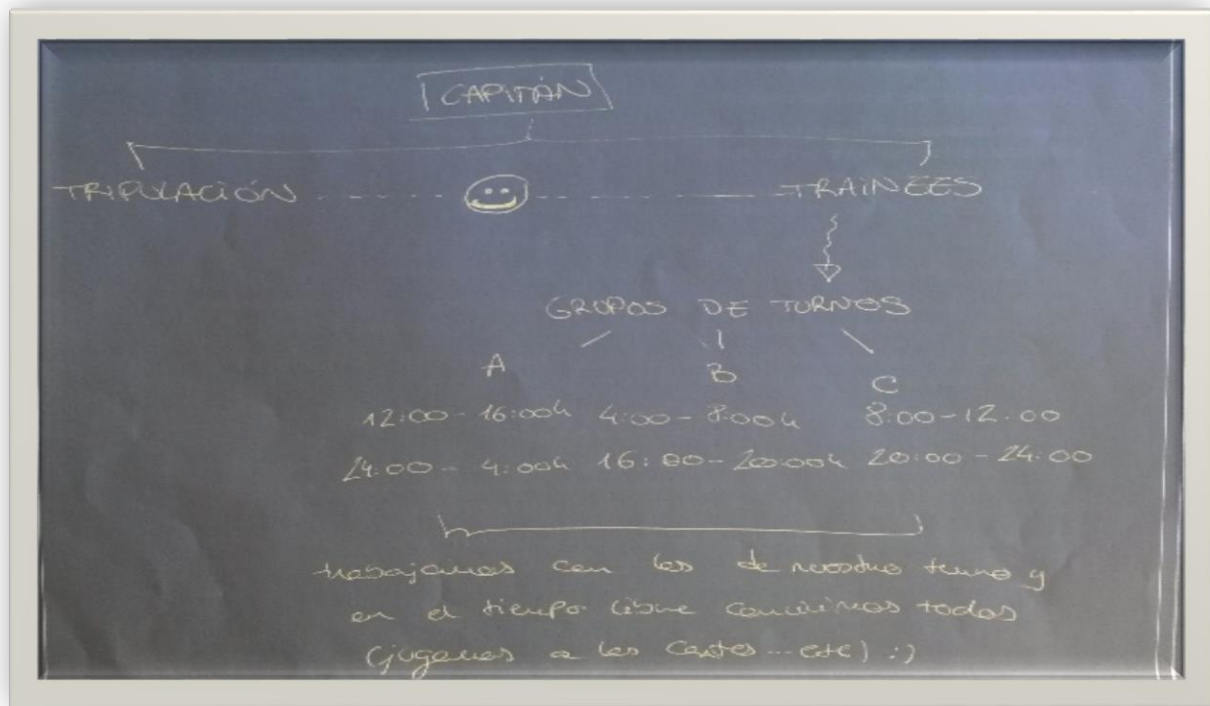 CAPITÁN
TRIPULACIÓN TRAINEES
GRUPOS DE TURNOS
A B C
12:00 - 16:00h 4:00 - 8:00h 8:00 - 12:00
24:00 - 4:00h 16:00 - 20:00h 20:00 - 24:00
trabajamos con los de nuestro turno y
en el tiempo libre convivimos todos
(jugamos a las cartas... etc) :)